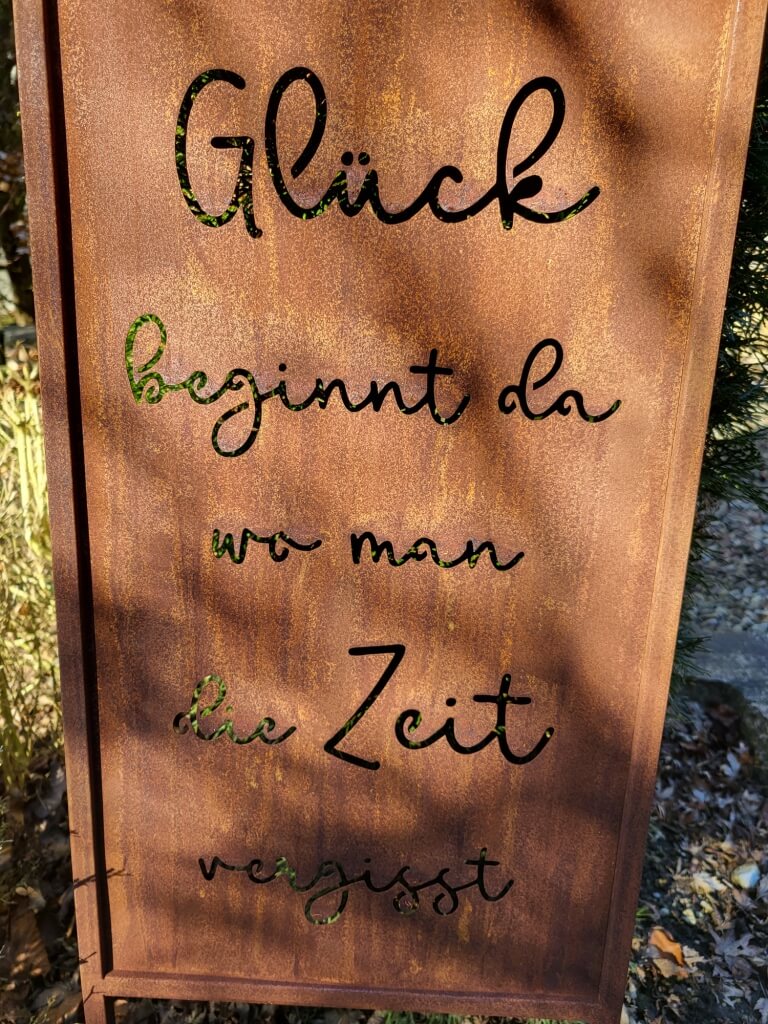 Glück
beginnt da
wo man
die Zeit
vergisst